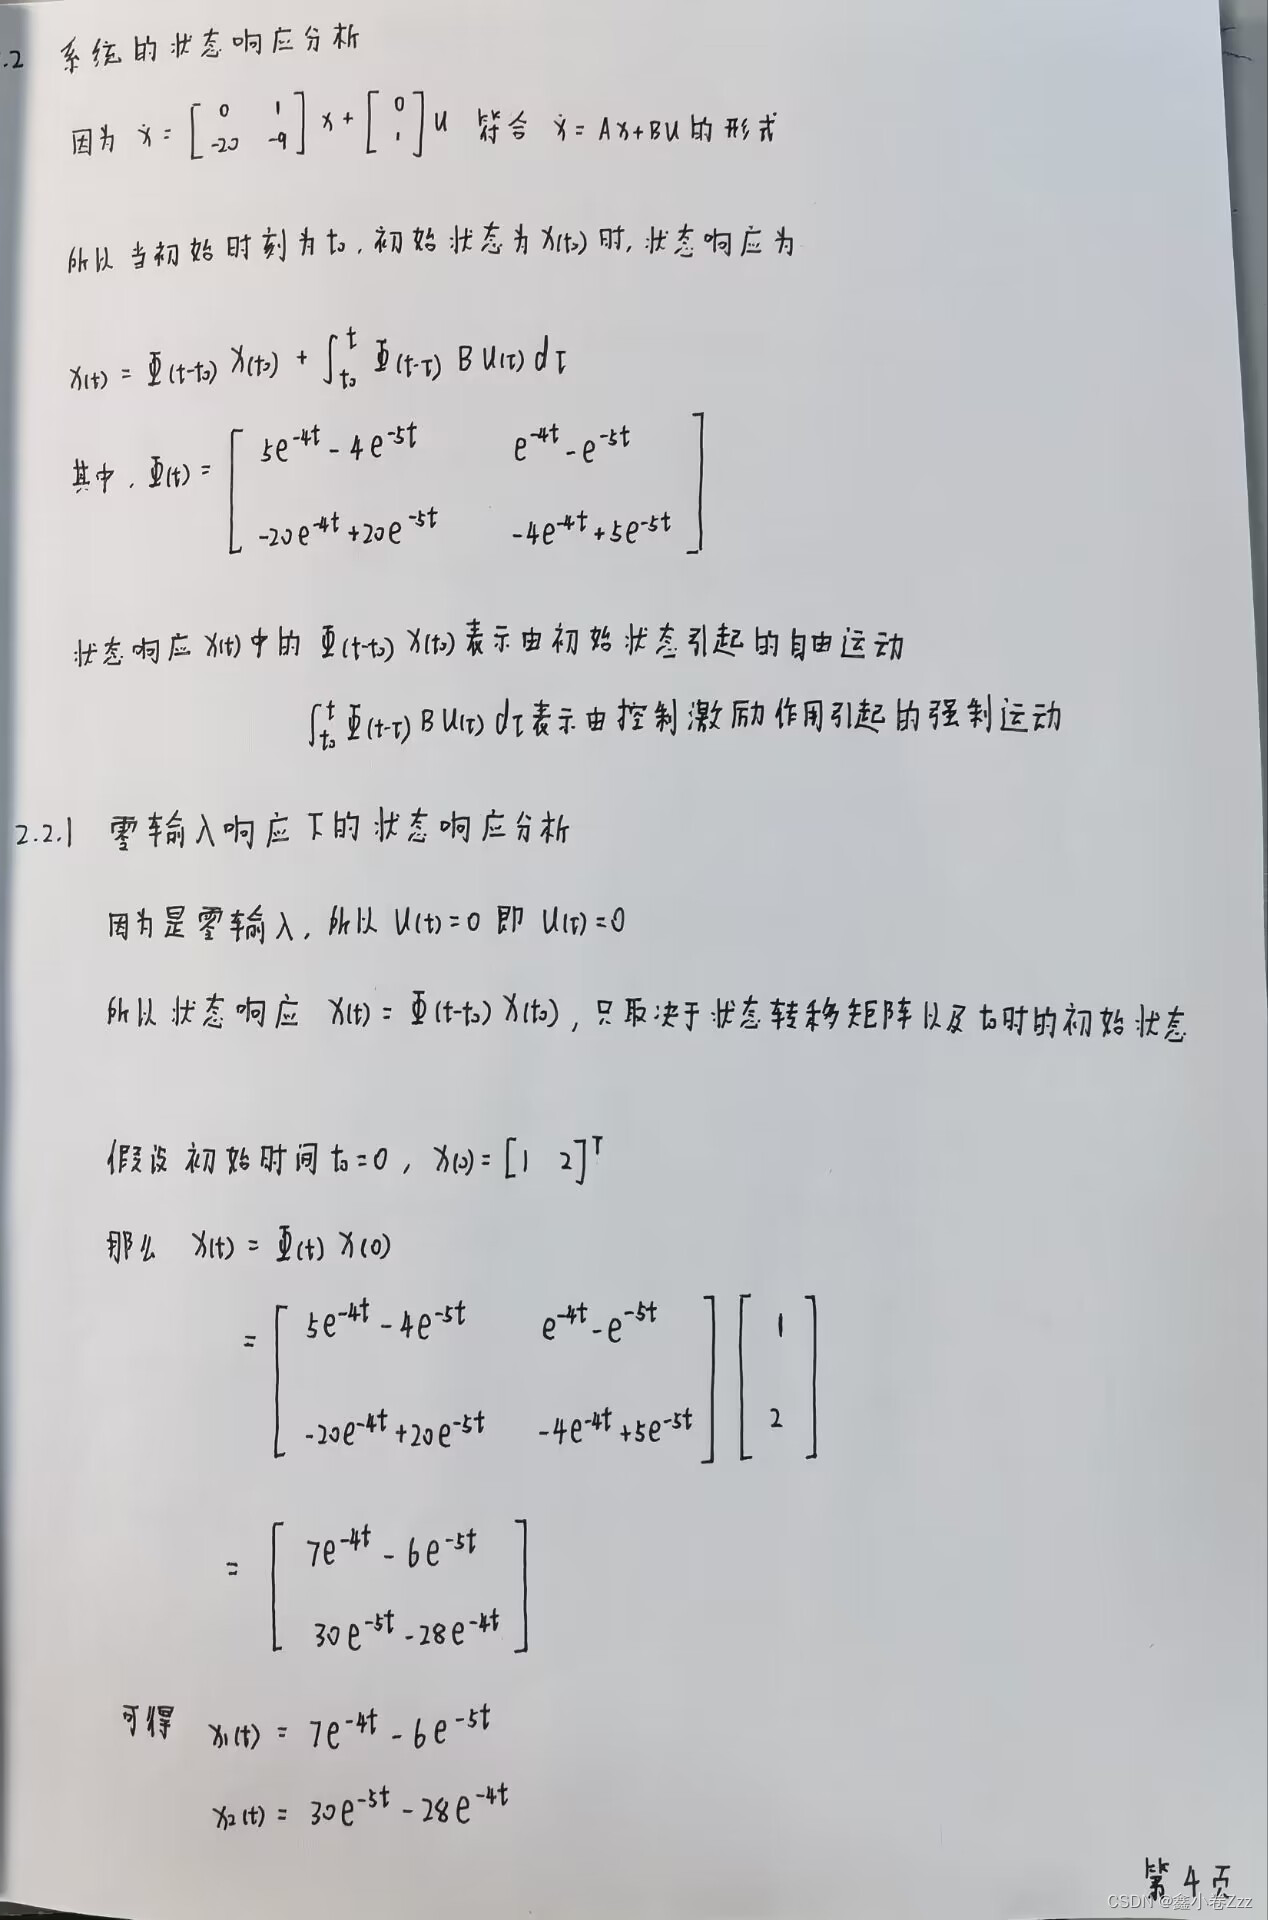 .2 系统的状态响应分析
因为 ẋ = [0 1; -20 -9] x + [0; 1] u 符合 ẋ = Ax+Bu 的形式
所以当初始时刻为 t₀, 初始状态为 x(t₀) 时, 状态响应为
x(t) = Φ(t-t₀) x(t₀) + ∫_{t₀}^{t} Φ(t-τ) B u(τ) dτ
其中, Φ(t) = [5e^{-4t} - 4e^{-5t} e^{-4t} - e^{-5t}; -20e^{-4t} + 20e^{-5t} -4e^{-4t} + 5e^{-5t}]
状态响应 x(t) 中的 Φ(t-t₀) x(t₀) 表示由初始状态引起的自由运动
∫_{t₀}^{t} Φ(t-τ) B u(τ) dτ 表示由控制激励作用引起的强制运动
2.2.1 零输入响应下的状态响应分析
因为是零输入, 所以 u(t)=0 即 u(τ)=0
所以状态响应 x(t) = Φ(t-t₀) x(t₀), 只取决于状态转移矩阵以及 t₀时的初始状态
假设初始时间 t₀=0, x(0) = [1 2]^T
那么 x(t) = Φ(t) x(0)
= [5e^{-4t} - 4e^{-5t} e^{-4t} - e^{-5t}; -20e^{-4t} + 20e^{-5t} -4e^{-4t} + 5e^{-5t}] [1; 2]
= [7e^{-4t} - 6e^{-5t}; 30e^{-5t} - 28e^{-4t}]
可得 x₁(t) = 7e^{-4t} - 6e^{-5t}
x₂(t) = 30e^{-5t} - 28e^{-4t}
第4页
CSDN @鑫小卷Zzz